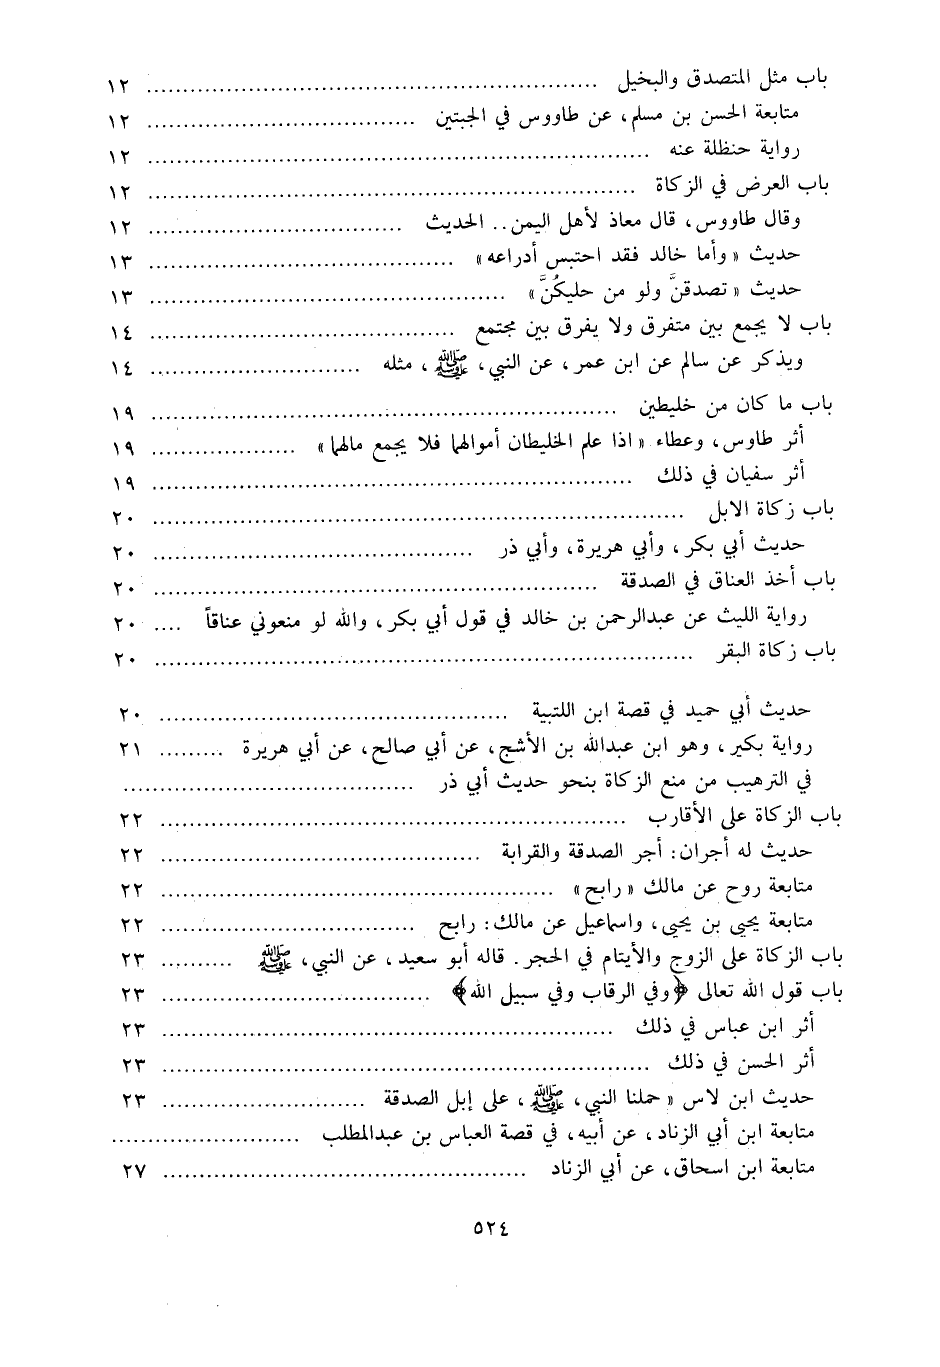 باب مثل المتصدق والبخيل ........ ١٢
متابعة الحسن بن مسلم، عن طاووس في الجبتين ........ ١٢
رواية حنظلة عنه ........ ١٢
باب العرض في الزكاة ........ ١٢
وقال طاووس، قال معاذ لأهل اليمن.. الحديث ........ ١٢
حديث «وأما خالد فقد احتبس أدراعه» ........ ١٣
حديث «تصدقنَّ ولو من حليكُنَّ» ........ ١٣
باب لا يجمع بين متفرق ولا يفرق بين مجتمع ........ ١٤
ويذكر عن سالم عن ابن عمر، عن النبي، ﷺ، مثله ........ ١٤
باب ما كان من خليطين ........ ١٩
أثر طاوس، وعطاء «اذا علم الخليطان أموالهما فلا يجمع مالهما» ........ ١٩
أثر سفيان في ذلك ........ ١٩
باب زكاة الابل ........ ٢٠
حديث أبي بكر، وأبي هريرة، وأبي ذر ........ ٢٠
باب أخذ العناق في الصدقة ........ ٢٠
رواية الليث عن عبدالرحمن بن خالد في قول أبي بكر، والله لو منعوني عناقاً .... ٢٠
باب زكاة البقر ........ ٢٠
حديث أبي حميد في قصة ابن اللتبية ........ ٢٠
رواية بكير، وهو ابن عبدالله بن الأشج، عن أبي صالح، عن أبي هريرة ........ ٢١
في الترهيب من منع الزكاة بنحو حديث أبي ذر ........
باب الزكاة على الأقارب ........ ٢٢
حديث له أجران: أجر الصدقة والقرابة ........ ٢٢
متابعة روح عن مالك «رابح» ........ ٢٢
متابعة يحيى بن يحيى، واسماعيل عن مالك: رابح ........ ٢٢
باب الزكاة على الزوج والأيتام في الحجر. قاله أبو سعيد، عن النبي، ﷺ ........ ٢٣
باب قول الله تعالى ﴿وفي الرقاب وفي سبيل الله﴾ ........ ٢٣
أثر ابن عباس في ذلك ........ ٢٣
أثر الحسن في ذلك ........ ٢٣
حديث ابن لاس «حملنا النبي، ﷺ، على إبل الصدقة ........ ٢٣
متابعة ابن أبي الزناد، عن أبيه، في قصة العباس بن عبدالمطلب ........
متابعة ابن اسحاق، عن أبي الزناد ........ ٢٧
٥٢٤